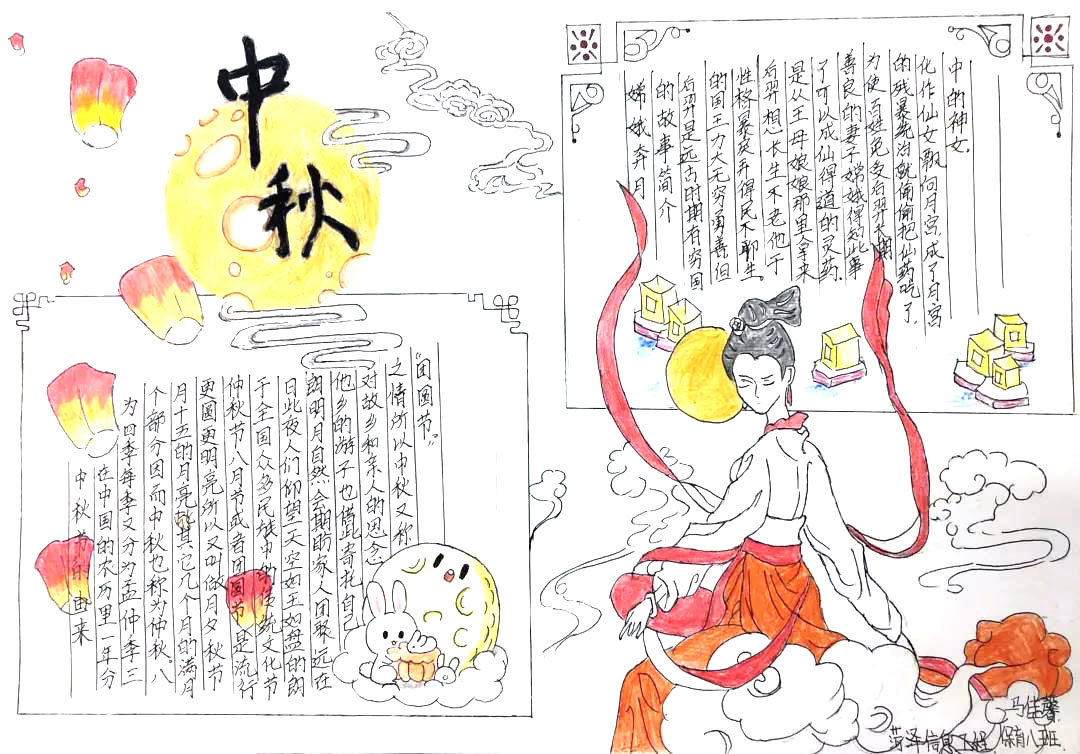 中秋
中秋节的由来
在中国的农历里一年分
为四季每季又分为孟仲季三
个部分因而中秋也称为仲秋。八
月十五的月亮比其它几个月的满月
更圆更明亮所以又叫做月夕秋节
仲秋节八月节或者团圆节是流行
于全国众多民族中的传统文化节
日此夜人们仰望天空如玉如盘的朗
朗明月自然会期盼家人团聚远在
他乡的游子也借此寄托自己
对故乡和亲人的思念
之情所以中秋又称
“团圆节”。
嫦娥奔月
的故事简介
后羿是远古时期有穷国
的国王力大无穷勇善但
性格暴戾弄得民不聊生
后羿想长生不老他于
是从王母娘娘那里拿来
了可以成仙得道的灵药
善良的妻子嫦娥得知此事
为使百姓免受后羿长期
的残暴统治就偷偷把仙药吃了.
化作仙女飘向月宫,成了月宫
中的神女.
马佳馨
菏泽信息工程 八班